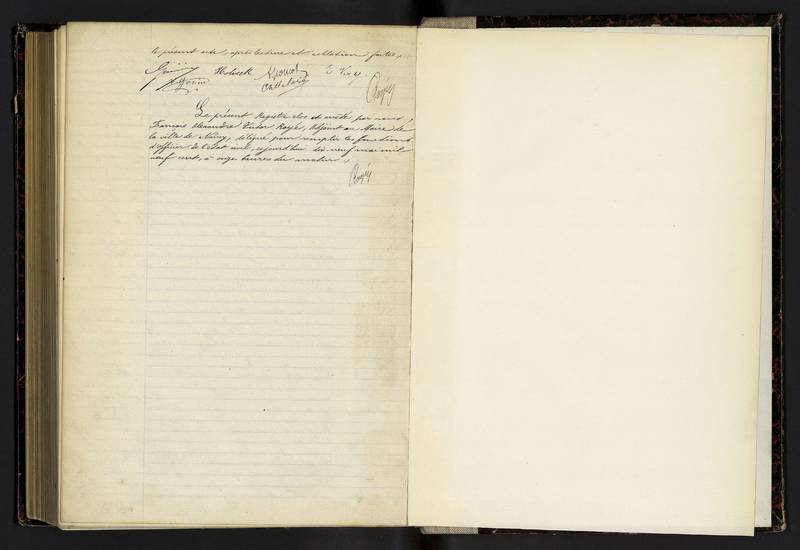 le présent acte, après lecture et collation faites.
Holveck
Le présent Registre clos et arrêté par nous,
François Alexandre Victor Royé, Adjoint au Maire de
la ville de Nancy, délégué pour remplir les fonctions
d'officier de l'état civil, aujourd'hui dix neuf mai mil
neuf cent, à onze heures du matin.
Royé